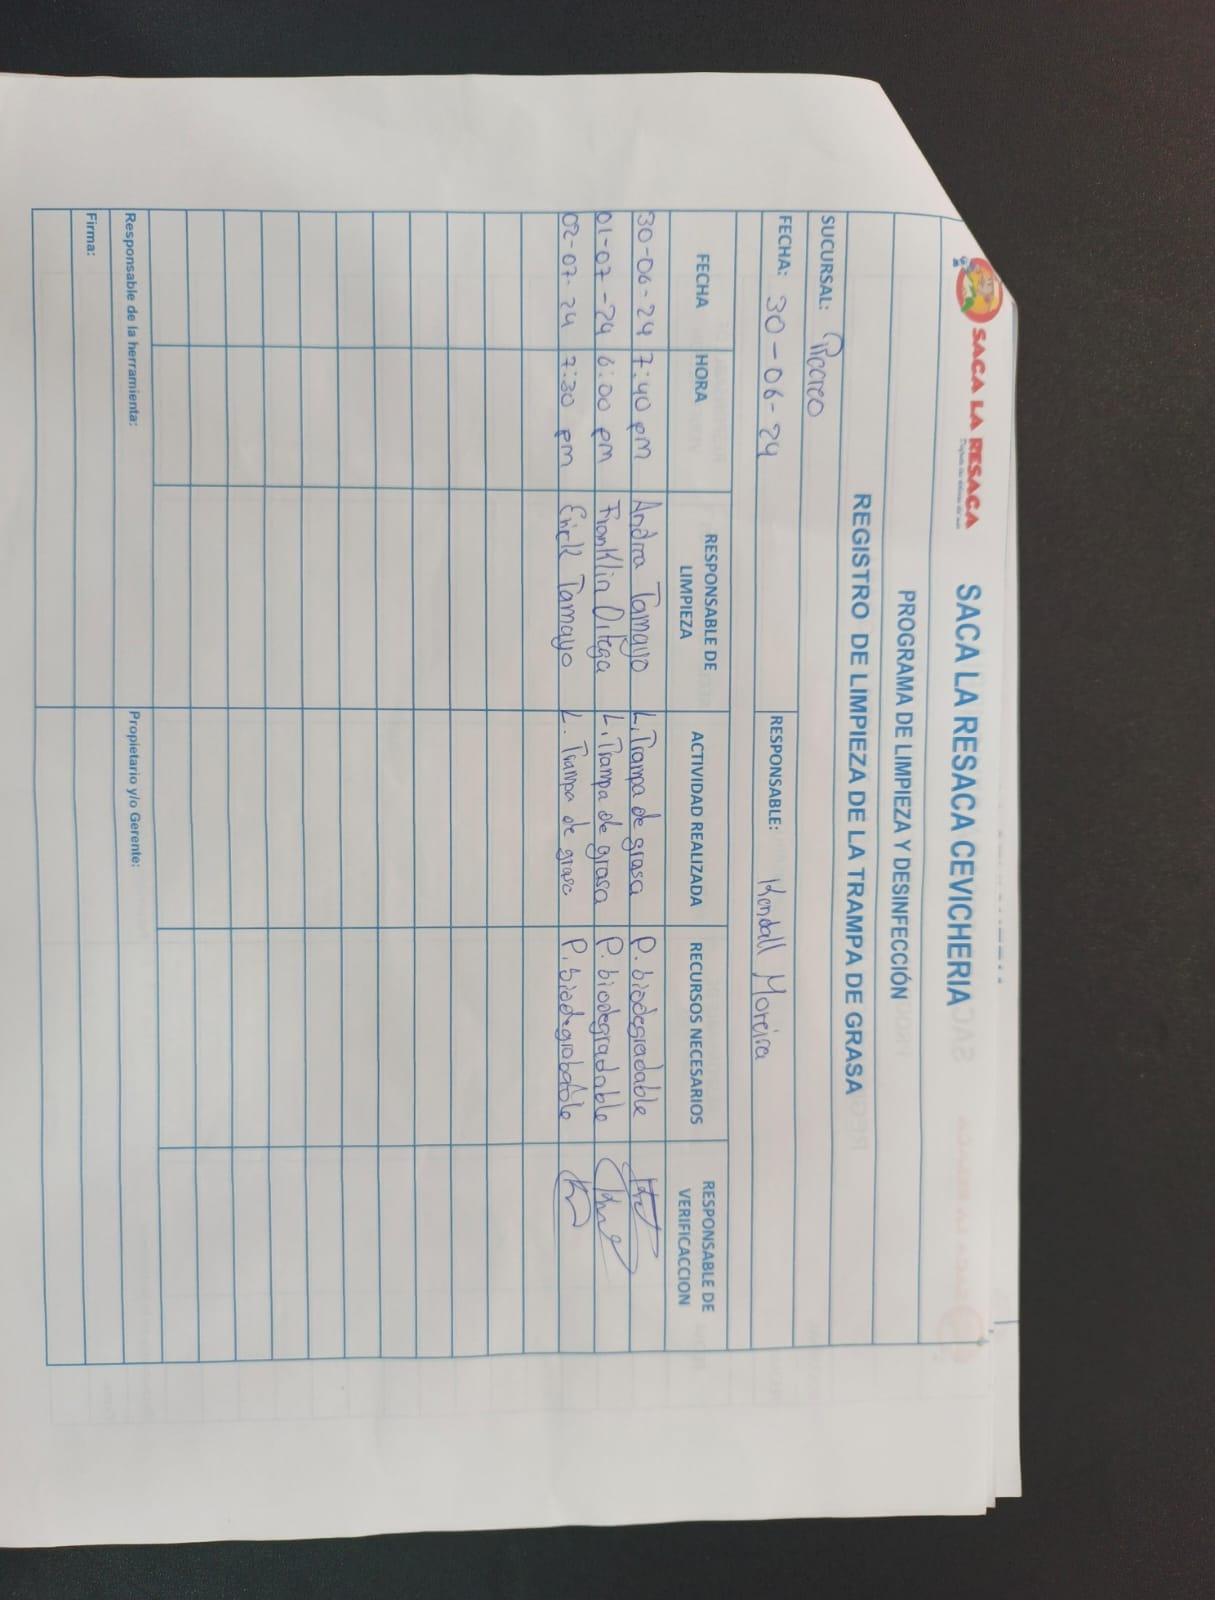 SACA LA RESACA
SACA LA RESACA CEVICHERIA
PROGRAMA DE LIMPIEZA Y DESINFECCIÓN
REGISTRO DE LIMPIEZA DE LA TRAMPA DE GRASA
SUCURSAL: Recreo
FECHA: 30-06-24 RESPONSABLE: Kendall Moreira
FECHA HORA RESPONSABLE DE LIMPIEZA ACTIVIDAD REALIZADA RECURSOS NECESARIOS RESPONSABLE DE VERIFICACCION
30-06-24 7:40 pm Andrea Tamayo L. Trampa de grasa P. biodegradable
01-07-24 6:00 pm Franklin Ortega L. Trampa de grasa P. biodegradable
02-07-24 7:30 pm Erick Tamayo L. Trampa de grasa
Responsable de la herramienta: Propietario y/o Gerente:
Firma: